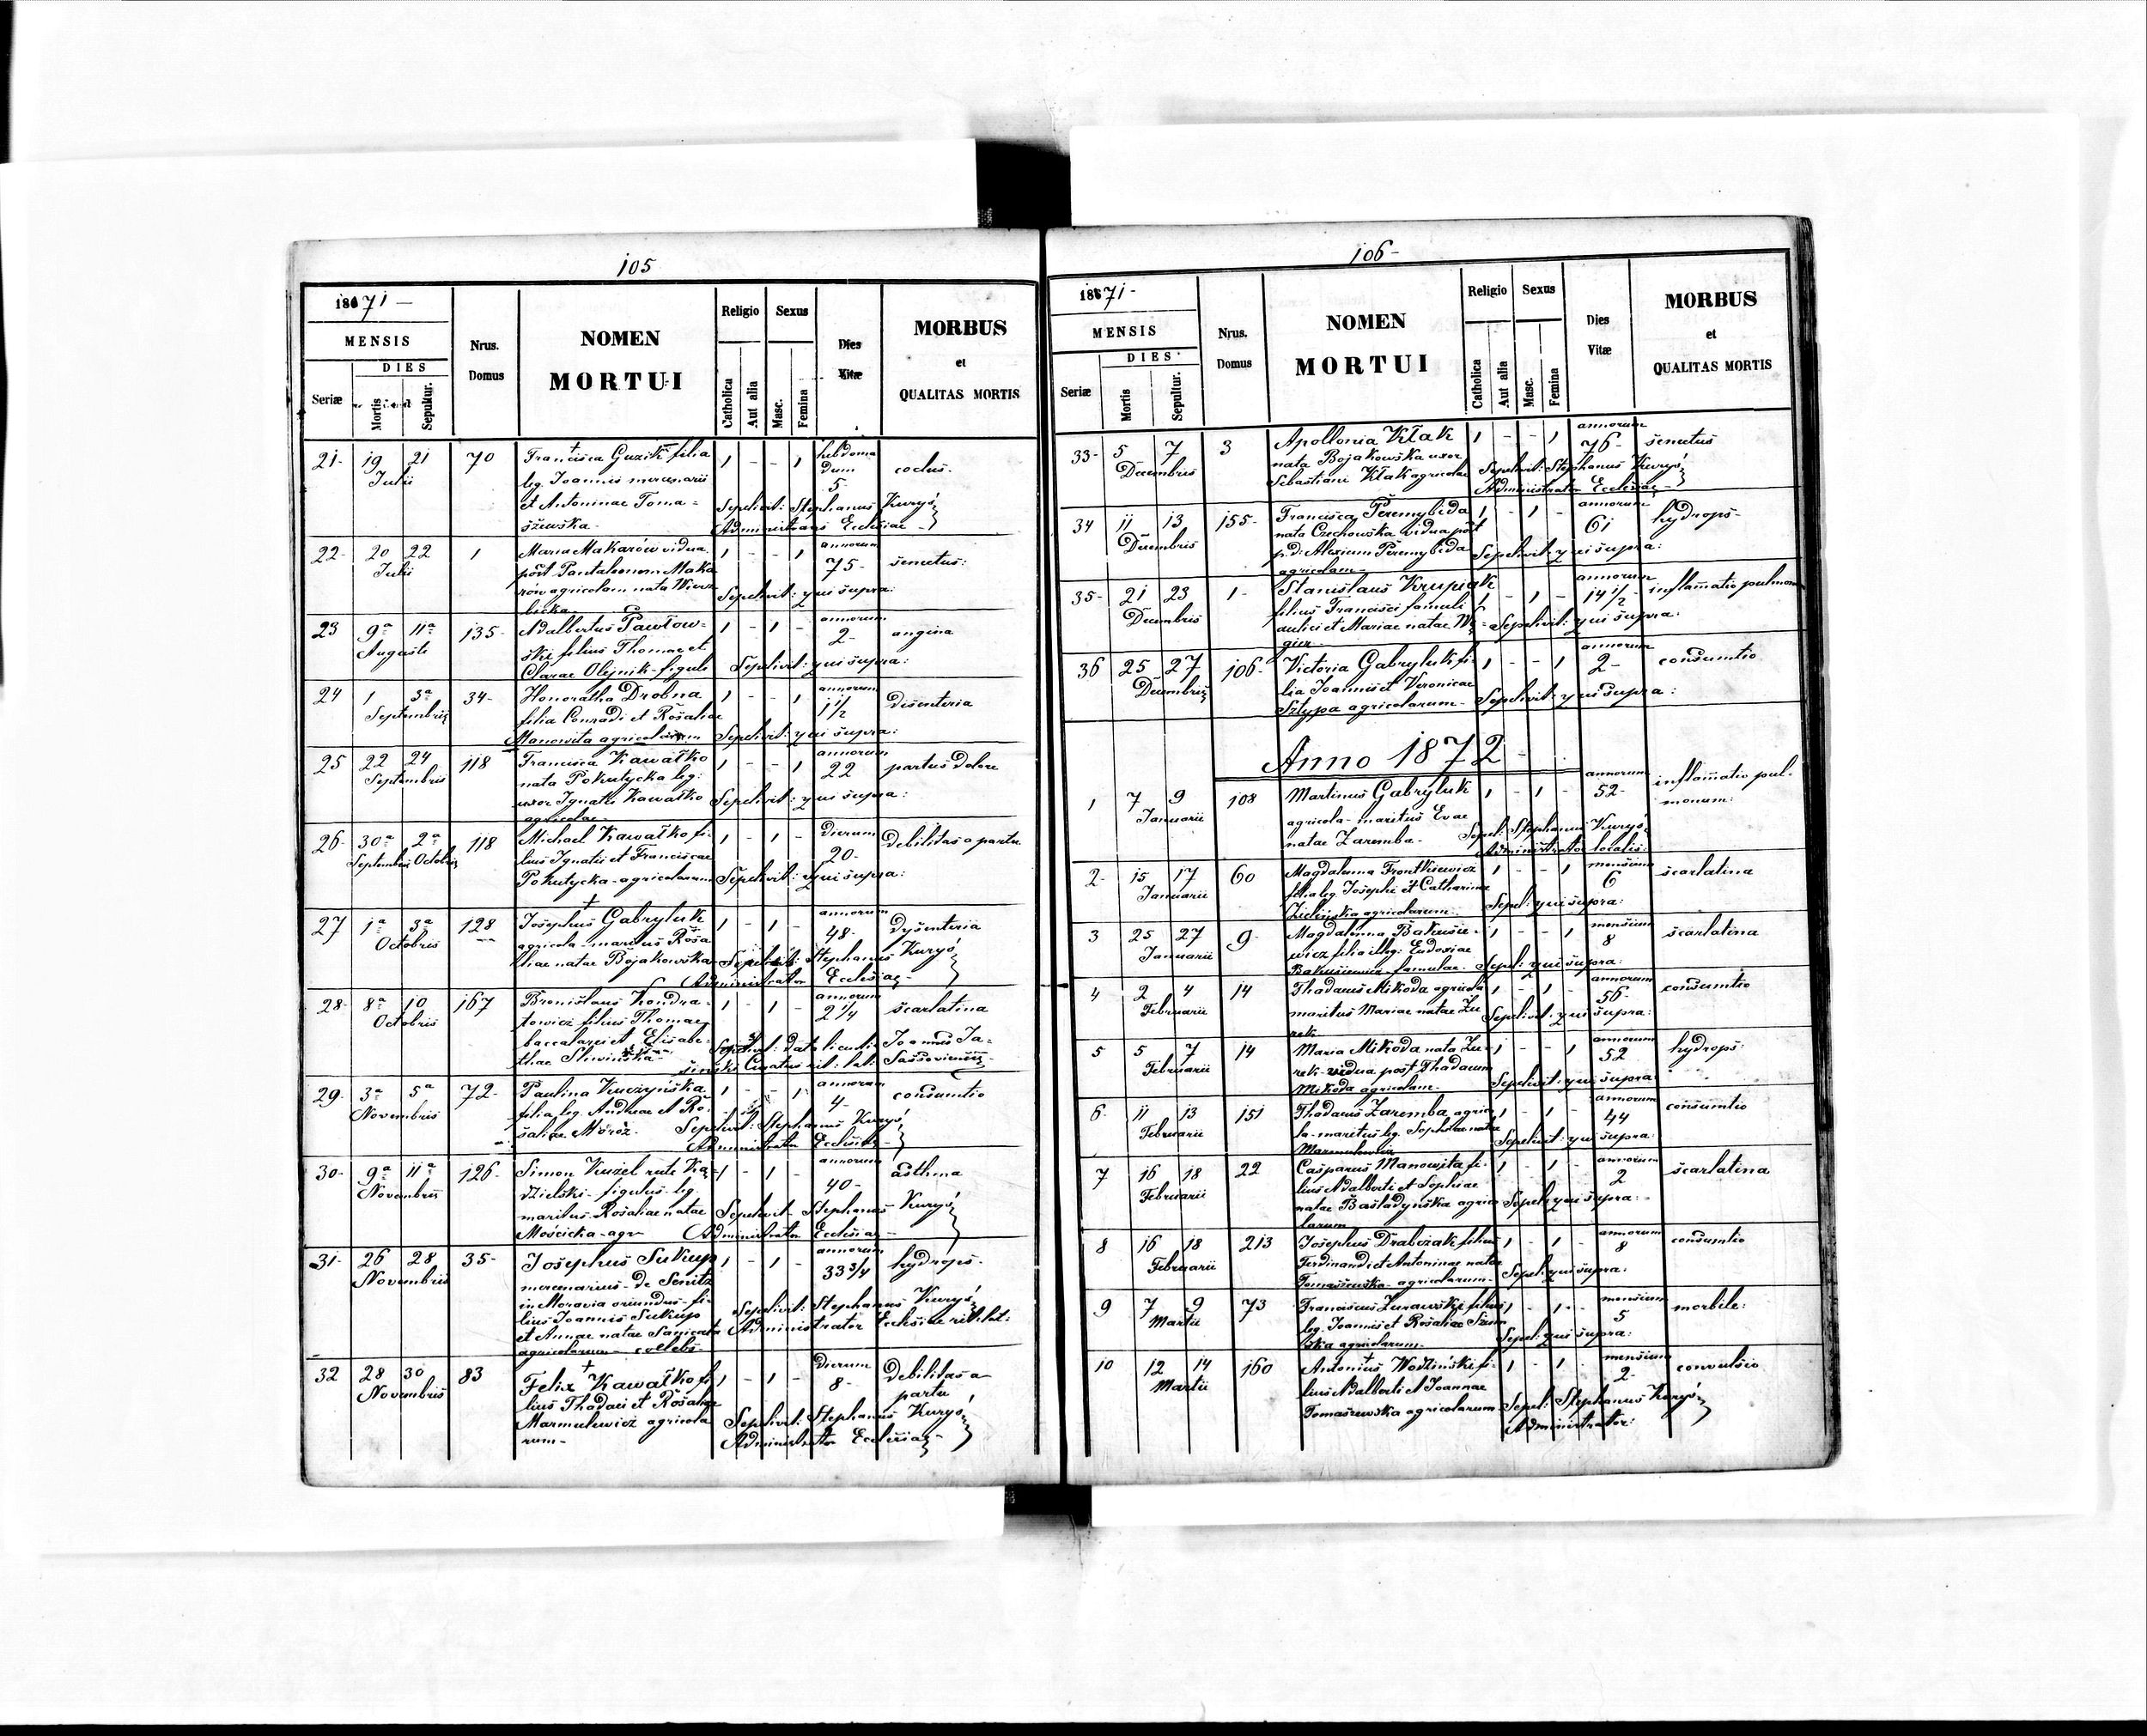 105
1871 -
MENSIS
DIES
Seriæ
Mortis
Sepultur.
Nrus.
Domus
NOMEN
MORTUI
Religio
Sexus
Catholica
Aut alia
Masc.
Femina
Dies
Vitæ
MORBUS
et
QUALITAS MORTIS
21- 19 21 70 Francisca Guzik filia 1 - - 1 hebdoma
Julii leg. Joannis mercenarii dum coclus.
et Antoninae Toma= 5- Sepelivit: Stephanus Kuryś
szewska- Administrans Ecclesiae-
22- 20 22 1 Maria Makarów vidua 1 - - 1 annorum
Julii post Pantaleonem Maka 75- senectus:
rów agricolam nata Wierz
bicka- Sepelivit: qui supra:
23 9a 11a 135- Adalbertus Pawłow= 1 - 1 - annorum
Augusti ski filius Thomae et 2- angina
Clarae Olejnik-figuli Sepelivit: qui supra:
24 1 3a 34- Honoratha Drobna 1 - - 1 annorum
Septembris filia Conradi et Rosaliae 1 1/2 disenteria
Manowita agricolarum Sepelivit: qui supra:
25 22 24 118 Francisca Kawałko 1 - - 1 annorum
Septembris nata Pokutycka leg: 22 partus dolore
uxor Ignatii Kawałko Sepelivit: qui supra:
agricolae-
26- 30a 2a 118 Michael Kawałko fi- 1 - 1 - dierum
Septembris Octobris lius Ignatii et Franciscae 20- debilitas a partu
Pokutycka-agricolarum Sepelivit: qui supra:
27 1a 3a 128 Josephus Gabryluk 1 - 1 - annorum
Octobris agricola-maritus Rosa 48- dysenteria
liae natae Bojakowska- Sepelivit: Stephanus Kuryś
Administrator Ecclesiae-
28- 8a 10 167 Bronislaus Kondra- 1 - 1 - annorum
Octobris towicz filius Thomae 2 1/4 scarlatina
baccalarei et Elisabe-
thae Sliwińska Sepelivit: data licentia Joannes Ja-
siński Curatus rit: lat:
29- 3a 5a 72- Paulina Kuczyńska 1 - - 1 annorum
Novembris filia leg. Andreae et Ro- 4- consumtio
saliae Moroz. Sepelivit: Stephanus Kuryś
Administrator Ecclesiae-
30- 9a 11a 126- Simon Kużel recte Ką- 1 - 1 - annorum
Novembris dzielski-figulus-leg. 40- asthma
maritus Rosaliae natae Sepelivit- Stephanus Kuryś
Mościcka-agr- Administrator Ecclesiae-
31- 26 28 35- Josephus Sukup 1 - 1 - annorum
Novembris mercenarius-de Senitz 33 3/4 hydrops-
in Moravia oriundus-fi-
lius Joannis Sukup Sepelivit: Stephanus Kuryś
et Annae natae Administrator Ecclesiae rit: lat:
agricolarum- coelebs-
32 28 30 83 Felix Kawałko fi 1 - 1 - dierum
Novembris lius Thadaei et Rosaliae 8- debilitas a
Marmulewicz agricola partu
rum- Sepelivit: Stephanus Kuryś
Administrator Ecclesiae-
106-
1871-
MENSIS
DIES
Seriæ
Mortis
Sepultur.
Nrus.
Domus
NOMEN
MORTUI
Religio
Sexus
Catholica
Aut alia
Masc.
Femina
Dies
Vitæ
MORBUS
et
QUALITAS MORTIS
33- 5 7 3 Apollonia Kłak 1 - - 1 annorum
Decembris nata Bojakowska uxor 76- senectus
Sebastiani Kłak agricolae Sepelivit: Stephanus Kuryś
Administrator Ecclesiae-
34 11 13 155- Francisca Peremybida 1 - 1 - annorum
Decembris nata Czechowska vidua post 61 hydrops-
p.d: Alexium Peremybida Sepelivit: qui supra:
agricolam-
35- 21 23 1- Stanislaus Krupiak 1 - 1 - annorum
Decembris filius Francisci famuli 14 1/2- inflamatio pulmon
aulici et Mariae natae Wę= Sepelivit: qui supra:
gier-
36 25 27 106- Victoria Gabryluk fi- 1 - - 1 annorum
Decembris lia Joannis et Veronicae 2- consumtio
Sztypa agricolarum- Sepelivit: qui supra:
Anno 1872
1 7 9 108 Martinus Gabryluk 1 - 1 - annorum
Januarii agricola-maritus Evae 52- inflamatio pul-
natae Zaremba- monum:
Sepel: Stephanus Kuryś
Administrator localis:
2- 15 17 60 Magdalena Frontkiewicz 1 - - 1 mensium
Januarii filia leg. Josephi et Catharinae 6 scarlatina
Zielińska agricolarum- Sepel: qui supra:
3 25 27 9- Magdalena Bakusie- 1 - - 1 mensium
Januarii wicz filia illeg: Eudoxiae 8 scarlatina
Bakusiewicz-famulae- Sepel: qui supra:
4 2 4 14 Thadaeus Mikoda agricola 1 - 1 - annorum
Februarii maritus Mariae natae Żu 56- consumtio
rek- Sepelivit: qui supra:
5 5 7 14 Maria Mikoda nata Żu- 1 - - 1 annorum
Februarii rek-vidua post Thadaeum 52 hydrops-
Mikoda agricolam- Sepelivit: qui supra:
6- 11 13 151 Thadaeus Zaremba agrico 1 - 1 - annorum
Februarii la-maritus leg. Sophiae natae 44 consumtio
Marmulewicz Sepelivit: qui supra:
7 16 18 22 Casparus Manowita fi- 1 - 1 - annorum
Februarii lius Adalberti et Sophiae 2 scarlatina
natae Basładyńska agrico Sepel: qui supra:
larum
8 16 18 213 Josephus Drabczak filius 1 - 1 - annorum
Februarii Ferdinandi et Antoninae natae 8 consumtio
Tomaszewska-agricolarum- Sepel: qui supra:
9 7 9 73 Franciscus Żurawski filius 1 - 1 - mensium
Martii leg. Joannis et Rosaliae 5 morbile:
agricolarum- Sepel: qui supra:
10 12 14 160 Antonius Wodziński fi- 1 - 1 - mensium
Martii lius Adalberti et Joannae 2- convulsio
Tomaszewska agricolarum- Sepel: Stephanus Kuryś
Administrator: